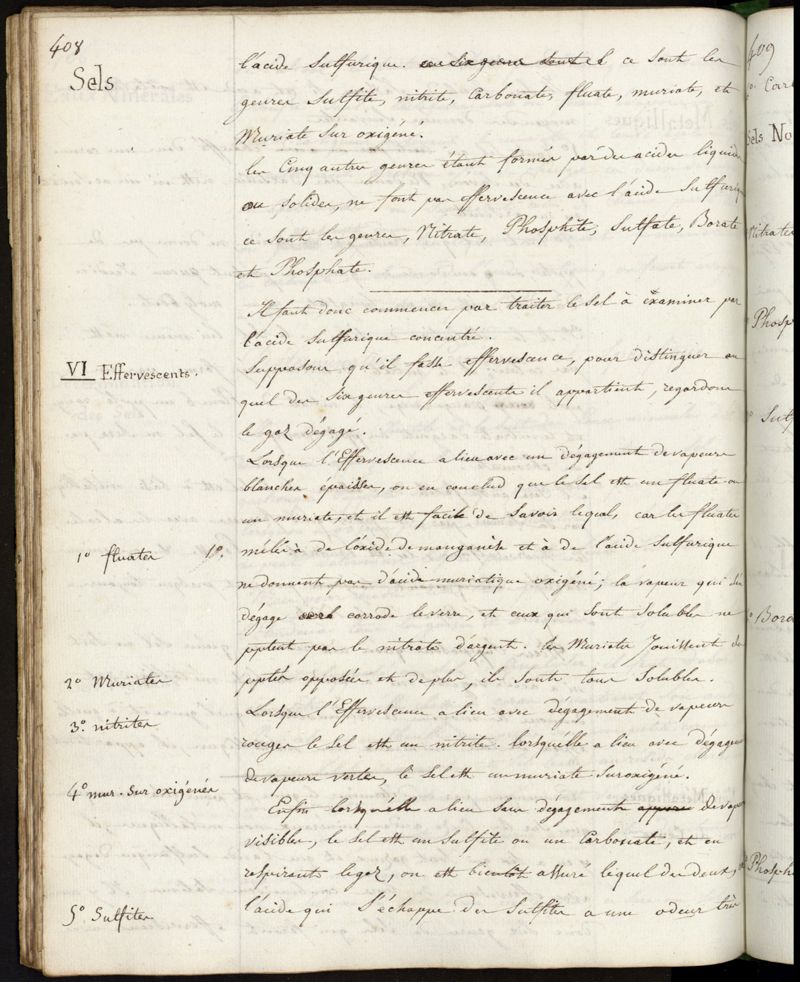 408
Sels
l'acide sulfurique. ce sont les
genres sulfite, nitrite, carbonate, fluate, muriate, et
Muriate sur oxigéné.
les Cinq autres genres étant formés par des acides liquides
ou solides, ne font pas effervescence avec l'acide sulfuriq
ce sont les genres, Nitrate, Phosphite, Sulfate, Borate
et Phosphate.
Il faut donc commencer par traiter le sel à examiner par
l'acide sulfurique concentré.
VI Effervescents.
Supposons qu'il fasse effervescence, pour distinguer au
quel des six genres effervescents il appartient, regardons
le gaz dégagé.
Lorsque l'Effervescence a lieu avec un dégagement de vapeurs
blanches épaisses, on en conclud que le sel est un fluate ou
un muriate, et il est facile de savoir lequel, car les fluates
1º fluates 1º. mêlés à de l'oxide de manganèse et à de l'acide sulfurique
ne donnent pas d'acide muriatique oxigéné; la vapeur qui s'en
dégage corrode le verre, et ceux qui sont solubles ne
pptent pas le nitrate d'argent. les Muriates Jouissent de
pptés opposées et de plus, ils sont tous solubles.
2º Muriates
Lorsque l'Effervescence a lieu avec dégagement de vapeurs
3º. nitrites
rouges le sel est un nitrite. lorsqu'elle a lieu avec dégagem
de vapeurs vertes, le sel est un muriate suroxigéné.
4º mur. sur oxigénés
Enfin lorsqu'elle a lieu sans dégagement de vapeurs
visibles, le sel est un sulfite ou un Carbonate, et en
respirant le gaz, on est bientôt assuré lequel des deux,
5º Sulfites
l'acide qui s'échappe des Sulfites a une odeur très
409
Sels No
Nitrates
Phosp
Sulf
Bora
Phosph